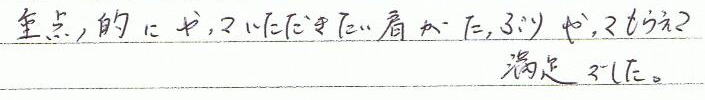 重点的にやっていただきたい着がたっぷりやってもらえて
満足でした。